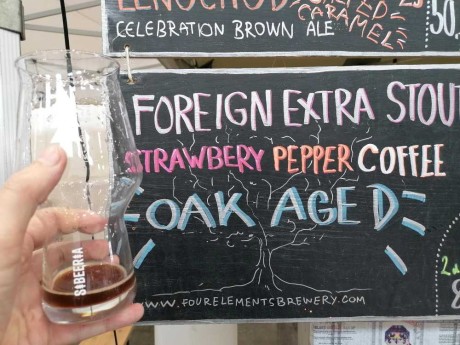 LENOCHOD SALTED
CARAMEL
CELEBRATION BROWN ALE
50,
FOREIGN EXTRA STOU
STRAWBERY PEPPER COFFEE
OAK AGED
WWW.FOURELEMENTSBREWERY.COM
SIBEERIA